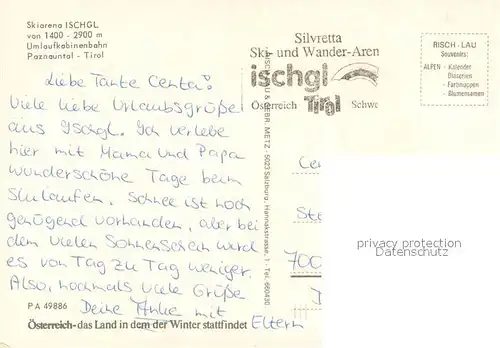 Skiarena ISCHGL
von 1400 - 2900 m
Umlaufkabinenbahn
Paznauntal - Tirol
Liebe Tante Centa!
Viele liebe Urlaubsgrüße
aus Ischgl. Ich verlebe
hier mit Mama und Papa
wunderschöne Tage beim
Skilaufen. Schnee ist noch
genügend vorhanden, aber bei
dem vielen Sonnenschein wird
es von Tag zu Tag weniger.
Also, nochmals viele Grüße
Deine Anke mit
Eltern
PA 49886
Österreich - das Land in dem der Winter stattfindet
METZ - 5023 Salzburg, Hannakstrasse, 1 - Tel. 660430
Silvretta
Ski- und Wander-Aren
ischgl
Österreich Tirol Schwe
RISCH-LAU
Souvenirs:
ALPEN - Kalender
- Diaserien
- Farbmappen
- Blumensamen
Cen
Ste
700
D
privacy protection
by Ansichtskarten-Center.de